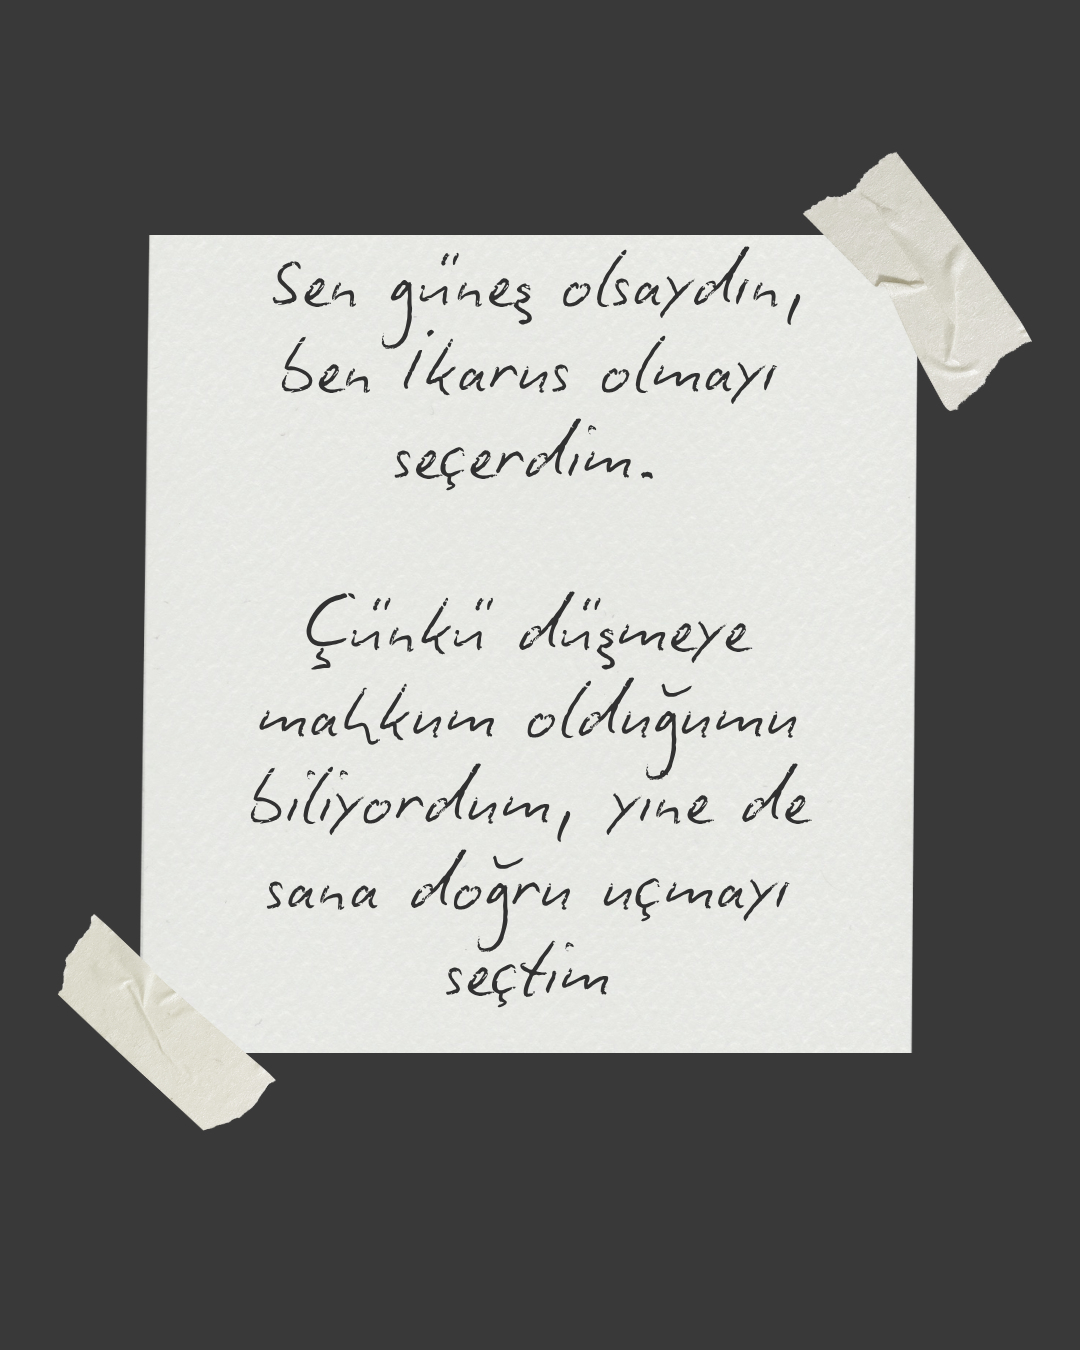 Sen güneş olsaydın,
ben İkarus olmayı
seçerdim.
Çünkü düşmeye
mahkum olduğumu
biliyordum, yine de
sana doğru uçmayı
seçtim